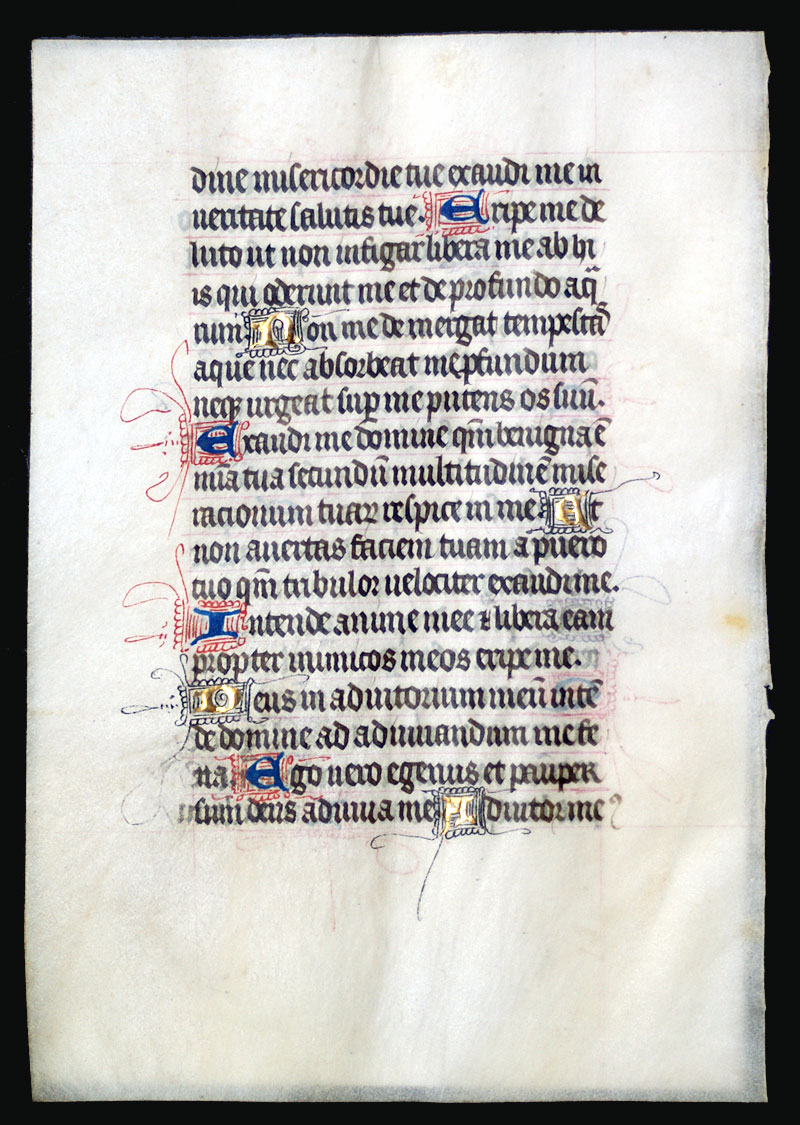 dine misericordie tue exaudi me in
ueritate salutis tue. Eripe me de
luto ut non infigar libera me ab hi
is qui oderunt me et de profundo aq̃
rum Non me de mergat tempestas
aque nec absorbeat me ꝓfundum
neqꝫ urgeat suꝑ me puteus os suū.
Exaudi me domine qm̄ benigna ē
mīa tua secundū multitudinē mise
racionum tuaꝝ respice in me Et
non auertas faciem tuam a puero
tuo qm̄ tribulor uelociter exaudi me.
Intende anime mee ⁊ libera eam
propter inimicos meos eripe me.
Deus in adiutorium meū intē
de domine ad adiuuandum me fe
na Ego uero egenus et pauper
sum deus adiuua me Adiutor me